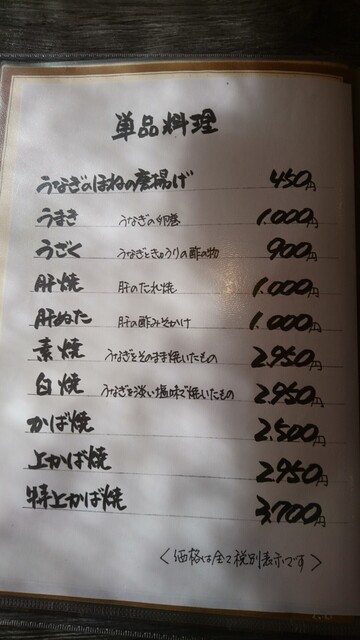 単品料理
うなぎのほねの唐揚げ 450円
うまき うなぎの卵巻 1,000円
うざく うなぎときゅうりの酢の物 900円
肝焼 肝のたれ焼 1,000円
肝ぬた 肝の酢みそかけ 1,000円
素焼 うなぎをそのまま焼いたもの 2,950円
白焼 うなぎを淡い塩味で焼いたもの 2,950円
かば焼 2,500円
上かば焼 2,950円
特上かば焼 3,700円
<価格は全て税別表示です>